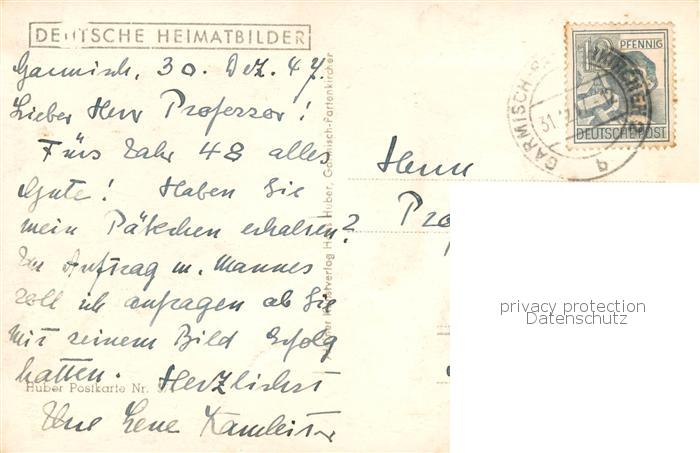 DEUTSCHE HEIMATBILDER
Garmisch, 30. Dez. 47.
Lieber Herr Professor!
Fürs Jahr 48 alles
Gute! Haben Sie
mein Päkchen erhalten?
Im Auftrag m. Mannes
soll ich anfragen ob Sie
mit seinem Bild Erfolg
hatten. Herzlichst
Ihre Lene
Huber Postkarte Nr.
Kunstverlag Hans Huber, Garmisch-Partenkirchen
12 PFENNIG
DEUTSCHE POST
GARMISCH-PARTENKIRCHEN
31.12
b
Herrn
Pro
privacy protection
Datenschutz